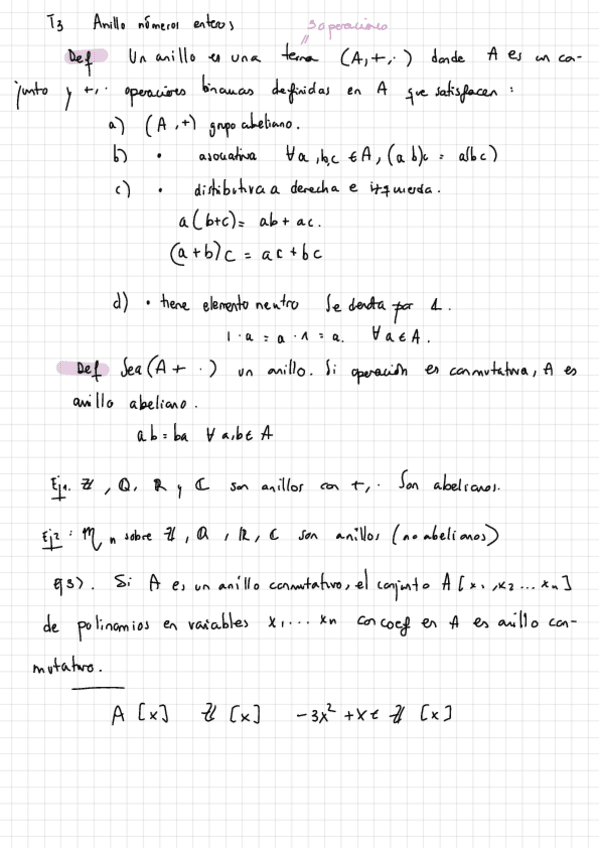 T3 Anillo números enteros
3 operaciones
Def Un anillo es una terna (A,+,·) donde A es un con-
junto y +,· operaciones binarias definidas en A que satisfacen:
a) (A,+) grupo abeliano.
b) · asociativa ∀a,b,c ∈ A, (ab)c = a(bc)
c) · distributiva a derecha e izquierda.
a(b+c) = ab + ac.
(a+b)c = ac + bc
d) · tiene elemento neutro Se denota por 1.
1·a = a·1 = a. ∀a∈A.
Def Sea (A + ·) un anillo. Si operación es conmutativa, A es
anillo abeliano.
ab = ba ∀a,b∈A
Ej1. ℤ, ℚ, ℝ y ℂ son anillos con +,· Son abelianos.
Ej2: M n sobre ℤ, ℚ, ℝ, ℂ son anillos (no abelianos)
Ej3). Si A es un anillo conmutativo, el conjunto A[x1,x2...xn]
de polinomios en variables x1,...xn con coef en A es anillo con-
mutativo.
A[x] ℤ[x] -3x² + x ∈ ℤ[x]